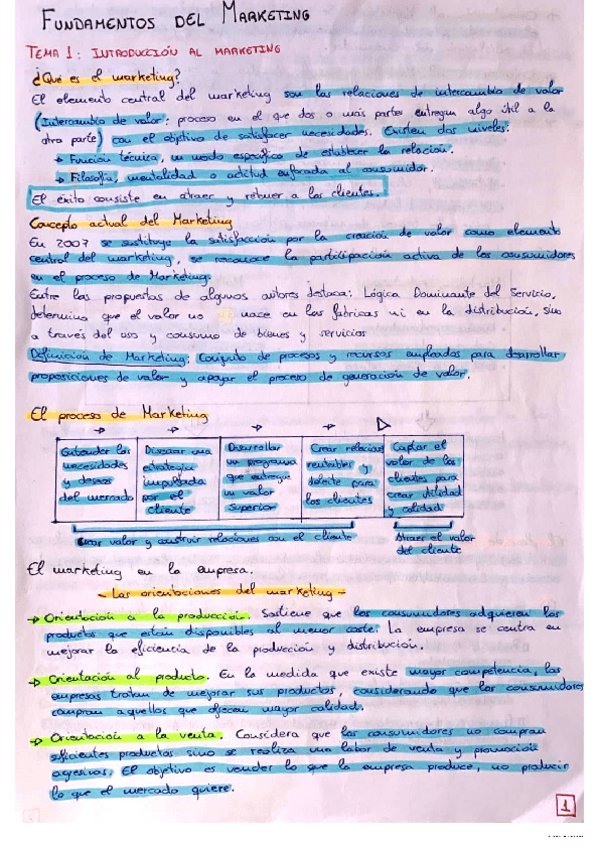 FUNDAMENTOS DEL MARKETING
TEMA 1: INTRODUCCIÓN AL MARKETING
¿Qué es el marketing?
El elemento central del marketing son las relaciones de intercambio de valor
(Intercambio de valor: proceso en el que dos o más partes entregan algo útil a la
otra parte) con el objetivo de satisfacer necesidades. Existen dos niveles:
→ Función técnica, un modo específico de establecer la relación.
→ Filosofía, mentalidad o actitud enfocada al consumidor.
El éxito consiste en atraer y retener a los clientes
Concepto actual del Marketing
En 2007 se sustituye la satisfacción por la creación de valor como elemento
central del marketing, se reconoce la participación activa de los consumidores
en el proceso de Marketing
Entre las propuestas de algunos autores destaca: Lógica Dominante del Servicio,
determina que el valor no nace en las fábricas ni en la distribución, sino
a través del uso y consumo de bienes y servicios
Definición de Marketing: Conjunto de procesos y recursos empleados para desarrollar
proposiciones de valor y apoyar el proceso de generación de valor.
El proceso de Marketing
Entender las necesidades y deseos del mercado
Diseñar una estrategia impulsada por el cliente
Desarrollar un programa que entregue un valor superior
Crear relaciones rentables y deleite para los clientes
Captar el valor de los clientes para crear utilidad y calidad
Crear valor y construir relaciones con el cliente
Atraer el valor del cliente
El marketing en la empresa.
- Las orientaciones del marketing -
→ Orientación a la producción. Sostiene que los consumidores adquieren los
productos que están disponibles al menor coste. La empresa se centra en
mejorar la eficiencia de la producción y distribución.
→ Orientación al producto. En la medida que existe mayor competencia, las
empresas tratan de mejorar sus productos, considerando que los consumidores
compran aquellos que ofrecen mayor calidad.
→ Orientación a la venta. Considera que los consumidores no compran
suficientes productos sino se realiza una labor de venta y promoción
agresivas. El objetivo es vender lo que la empresa produce, no producir
lo que el mercado quiere.
1